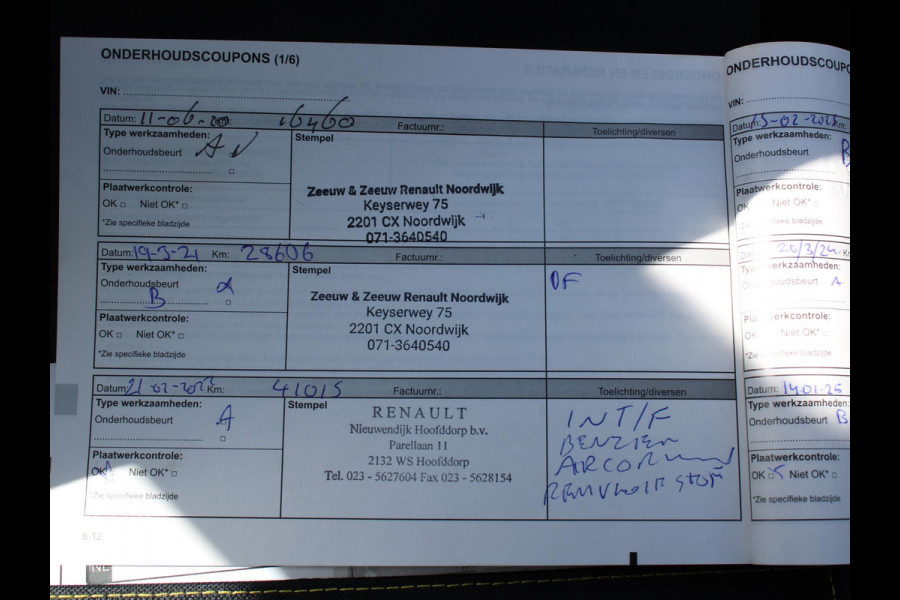 ONDERHOUDSCOUPONS (1/6)
VIN:
Datum: 11-06-20 Km: 16460 Factuurnr.: Toelichting/diversen
Type werkzaamheden:
Onderhoudsbeurt A V
Stempel
Zeeuw & Zeeuw Renault Noordwijk
Keyserwey 75
2201 CX Noordwijk
071-3640540
Plaatwerkcontrole:
OK □ Niet OK* □
*Zie specifieke bladzijde
Datum: 19-3-21 Km: 28606 Factuurnr.: Toelichting/diversen
Type werkzaamheden:
Onderhoudsbeurt
B
Stempel
Zeeuw & Zeeuw Renault Noordwijk
Keyserwey 75
2201 CX Noordwijk
071-3640540
DF
Plaatwerkcontrole:
OK □ Niet OK* □
*Zie specifieke bladzijde
Datum: 21-02-2022 Km: 41015 Factuurnr.: Toelichting/diversen
Type werkzaamheden:
Onderhoudsbeurt A
Stempel
RENAULT
Nieuwendijk Hoofddorp b.v.
Parellaan 11
2132 WS Hoofddorp
Tel. 023 - 5627604 Fax 023 - 5628154
INT/F
Plaatwerkcontrole:
OK Niet OK* □
*Zie specifieke bladzijde
6.12
NL
ONDERHOUDSCOUPO
VIN:
Datum: 15-02-2023 Km:
Type werkzaamheden:
Onderhoudsbeurt B
Plaatwerkcontrole:
OK Niet OK* □
*Zie specifieke bladzijde
20/3/24
werkzaamheden:
Onderhoudsbeurt A
werkcontrole:
OK Niet OK* □
*Zie specifieke bladzijde
Datum: 14-01-25
Type werkzaamheden:
Onderhoudsbeurt B
Plaatwerkcontrole:
OK Niet OK* □
*Zie specifieke bladzijde